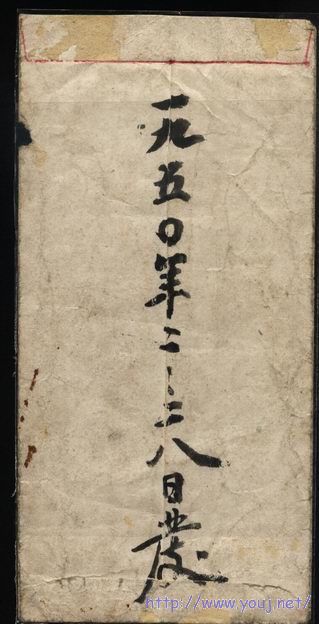 一九五〇年二、二八日發
http://www.youj.net/